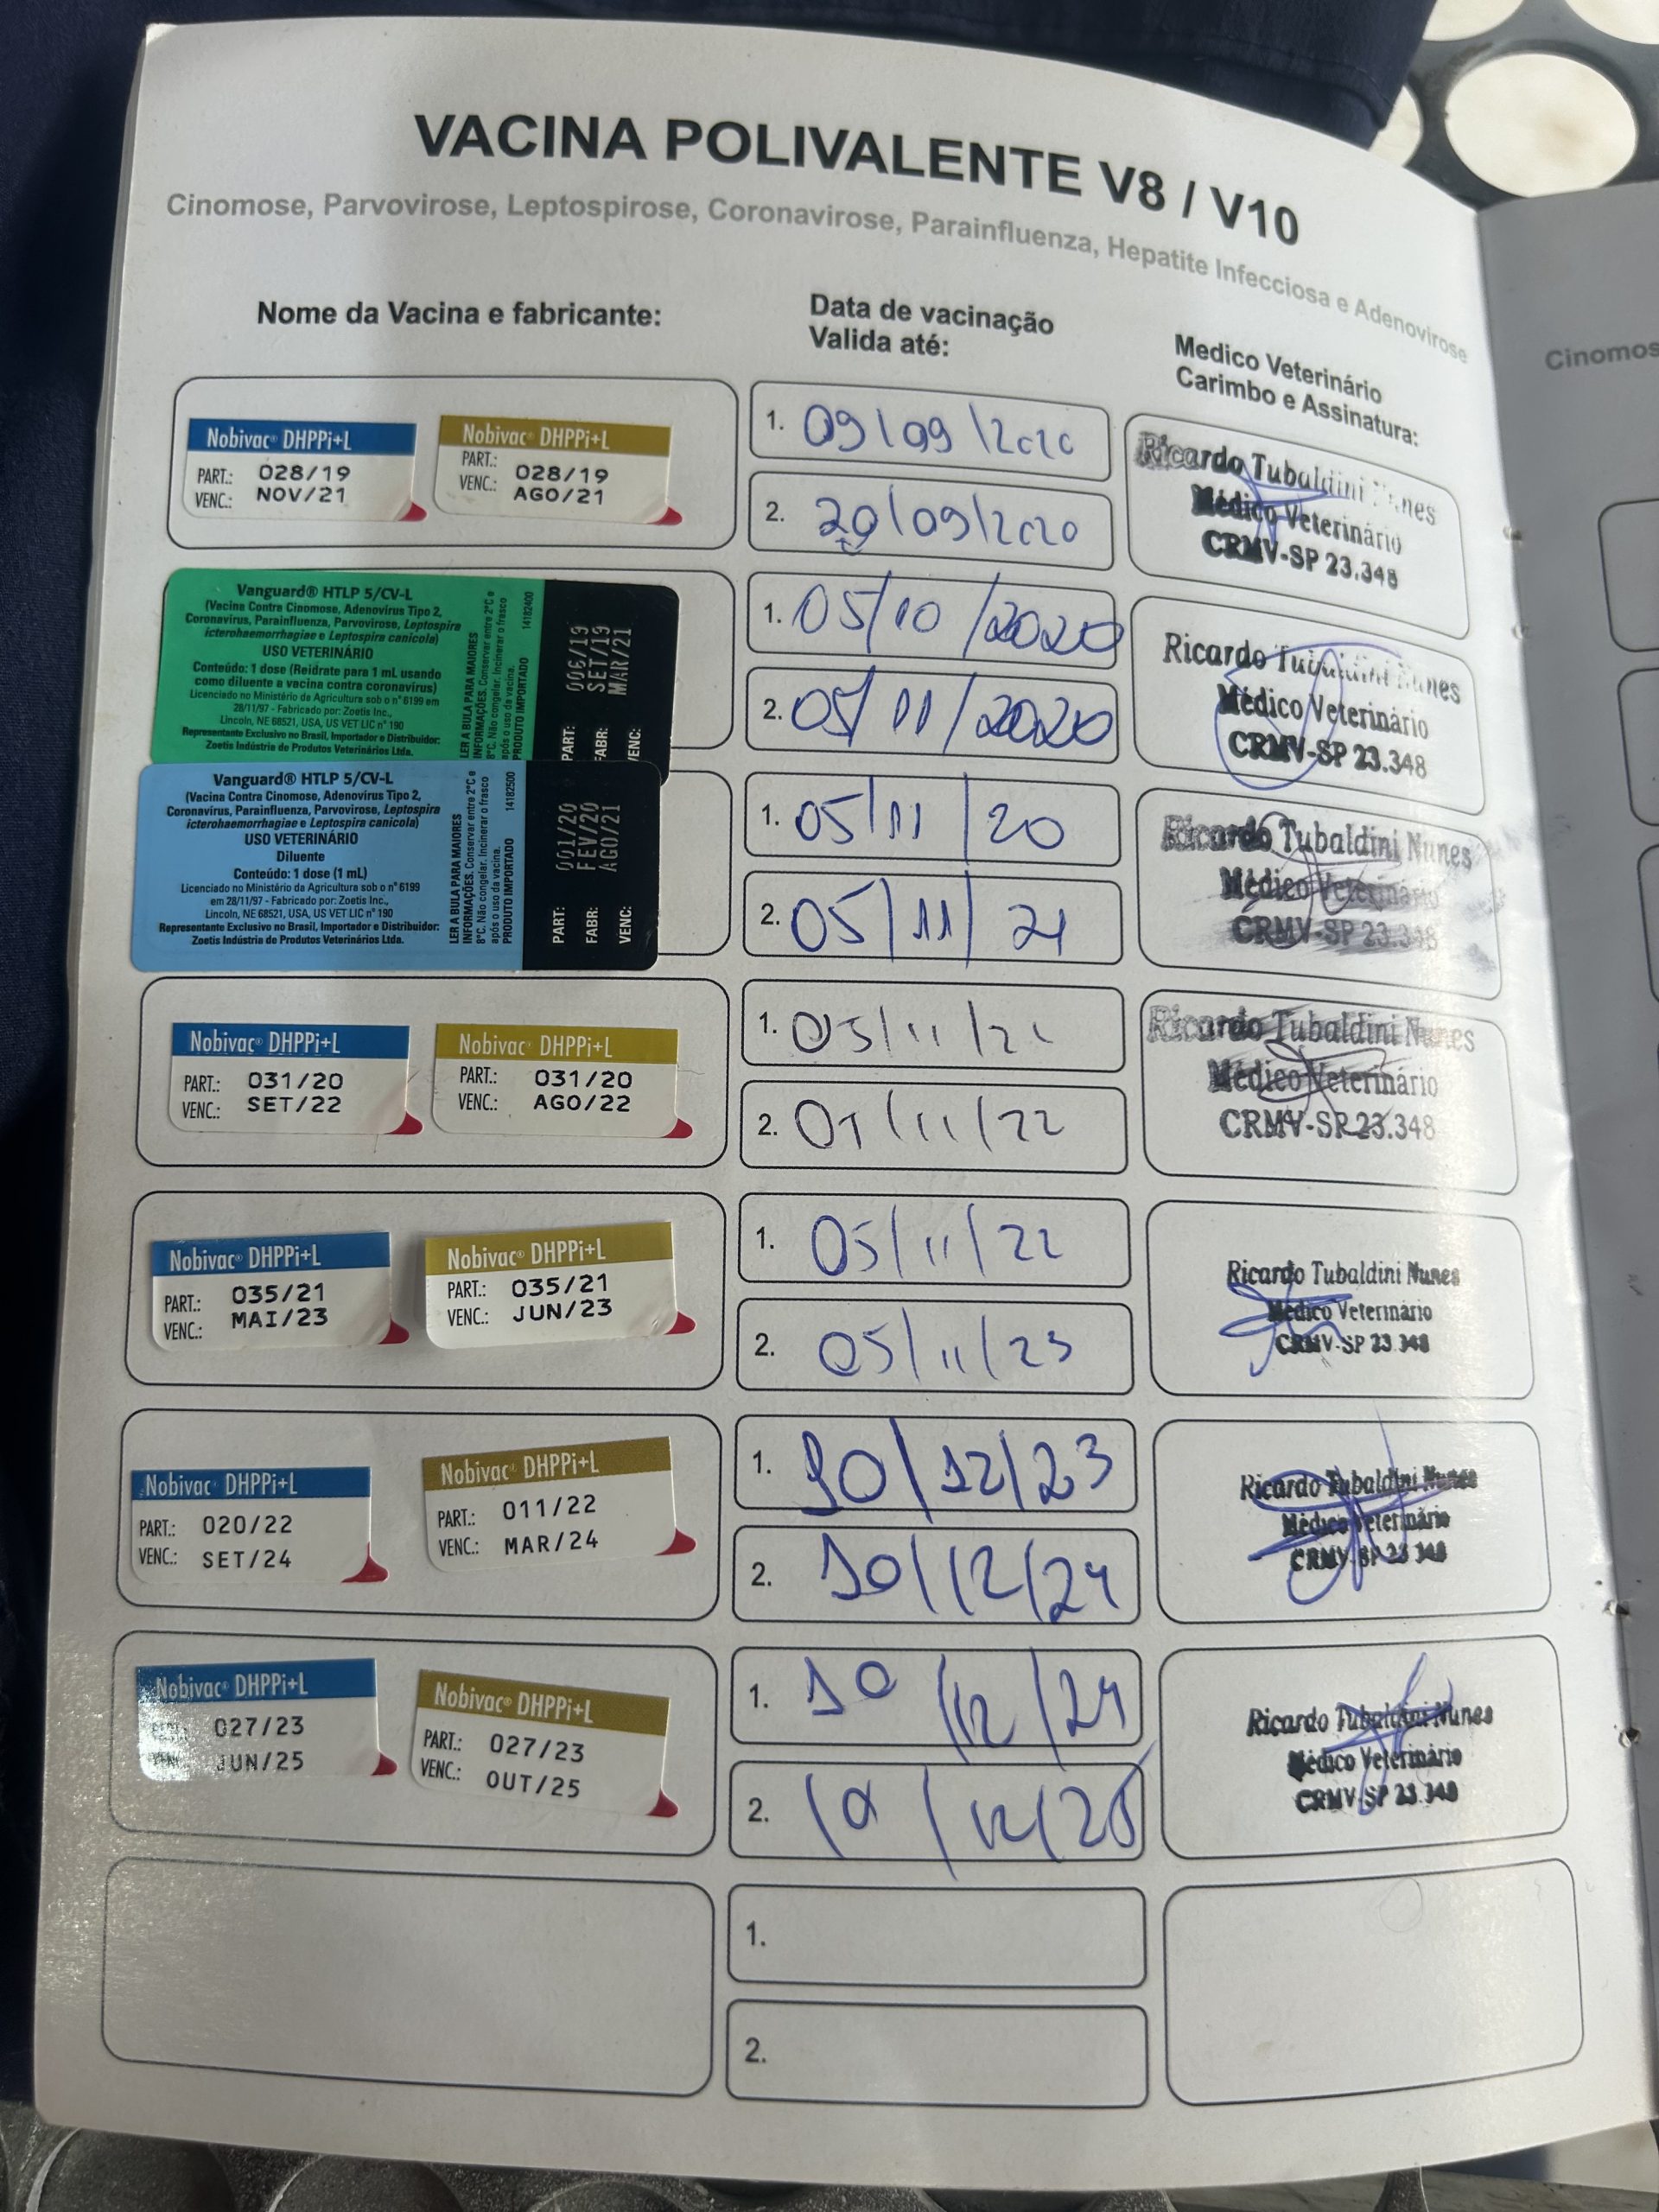 VACINA POLIVALENTE V8 / V10
Cinomose, Parvovirose, Leptospirose, Coronavirose, Parainfluenza, Hepatite Infecciosa e Adenovirose
Nome da Vacina e fabricante:
Data de vacinação
Valida até:
Medico Veterinário
Carimbo e Assinatura:
Cinomos
Nobivac® DHPPi+L
PART.: 028/19
VENC.: NOV/21
Nobivac® DHPPi+L
PART.: 028/19
VENC.: AGO/21
1. 09/09/2020
2. /09/2020
Ricardo Tubaldini Nunes
Médico Veterinário
CRMV-SP 23.348
Vanguard® HTLP 5/CV-L
(Vacina Contra Cinomose, Adenovírus Tipo 2,
Coronavírus, Parainfluenza, Parvovirose, Leptospira
icterohaemorrhagiae e Leptospira canicola)
USO VETERINÁRIO
Conteúdo: 1 dose (Reidrate para 1 mL usando
como diluente a vacina contra coronavírus)
Licenciado no Ministério da Agricultura sob o nº 6199 em
28/11/97 - Fabricado por: Zoetis Inc.,
Lincoln, NE 68521, USA, US VET LIC nº 190
Representante Exclusivo no Brasil, Importador e Distribuidor:
Zoetis Indústria de Produtos Veterinários Ltda.
LER A BULA PARA MAIORES
INFORMAÇÕES. Conservar entre 2°C e
8°C. Não congelar. Incinerar o frasco
após o uso da vacina.
PRODUTO IMPORTADO 14182400
PART: 006/19
FABR: SET/19
VENC: MAR/21
1. 05/10/2020
2. 05/11/2020
Ricardo Tubaldini Nunes
Médico Veterinário
CRMV-SP 23.348
Vanguard® HTLP 5/CV-L
(Vacina Contra Cinomose, Adenovírus Tipo 2,
Coronavírus, Parainfluenza, Parvovirose, Leptospira
icterohaemorrhagiae e Leptospira canicola)
USO VETERINÁRIO
Diluente
Conteúdo: 1 dose (1 mL)
Licenciado no Ministério da Agricultura sob o nº 6199
em 28/11/97 - Fabricado por: Zoetis Inc.,
Lincoln, NE 68521, USA, US VET LIC nº 190
Representante Exclusivo no Brasil, Importador e Distribuidor:
Zoetis Indústria de Produtos Veterinários Ltda.
LER A BULA PARA MAIORES
INFORMAÇÕES. Conservar entre 2°C e
8°C. Não congelar. Incinerar o frasco
após o uso da vacina.
PRODUTO IMPORTADO 14182500
PART: 001/20
FABR: FEV/20
VENC: AGO/21
1. 05/11/20
2. 05/11/21
Ricardo Tubaldini Nunes
Médico Veterinário
CRMV-SP 23.348
Nobivac® DHPPi+L
PART.: 031/20
VENC.: SET/22
Nobivac® DHPPi+L
PART.: 031/20
VENC.: AGO/22
1. 05/11/21
2. /11/22
Ricardo Tubaldini Nunes
Médico Veterinário
CRMV-SP 23.348
Nobivac® DHPPi+L
PART.: 035/21
VENC.: MAI/23
Nobivac® DHPPi+L
PART.: 035/21
VENC.: JUN/23
1. 05/11/22
2. 05/11/23
Ricardo Tubaldini Nunes
Médico Veterinário
CRMV-SP 23.348
Nobivac® DHPPi+L
PART.: 020/22
VENC.: SET/24
Nobivac® DHPPi+L
PART.: 011/22
VENC.: MAR/24
1. 10/12/23
2. 10/12/24
Ricardo Tubaldini Nunes
Médico Veterinário
CRMV-SP 23.348
Nobivac® DHPPi+L
PART.: 027/23
VENC.: JUN/25
Nobivac® DHPPi+L
PART.: 027/23
VENC.: OUT/25
1. 10/12/24
2. 10/12/25
Ricardo Tubaldini Nunes
Médico Veterinário
CRMV-SP 23.348
1.
2.